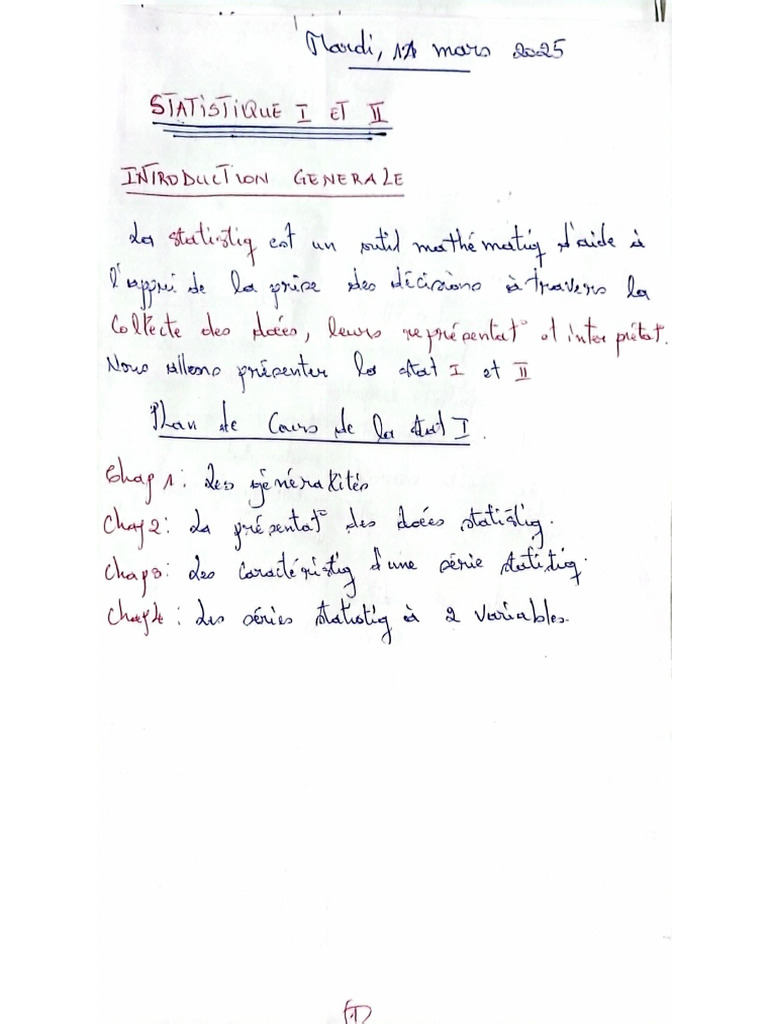 Mardi, 11 mars 2025
STATISTIQUE I ET II
INTRODUCTION GENERALE
La statistiq est un outil mathématiq d'aide à
l'appui de la prise des décisions à travers la
Collecte des doées, leurs représentat° et interprétat.
Nous allons présenter la stat I et II
Plan de Cours de la stat I.
Chap 1: Les généralités
Chap 2: La présentat° des doées statistiq.
Chap 3: Les caractéristiq d'une série statistiq.
Chap 4: Les séries statistiq à 2 variables.
(1)